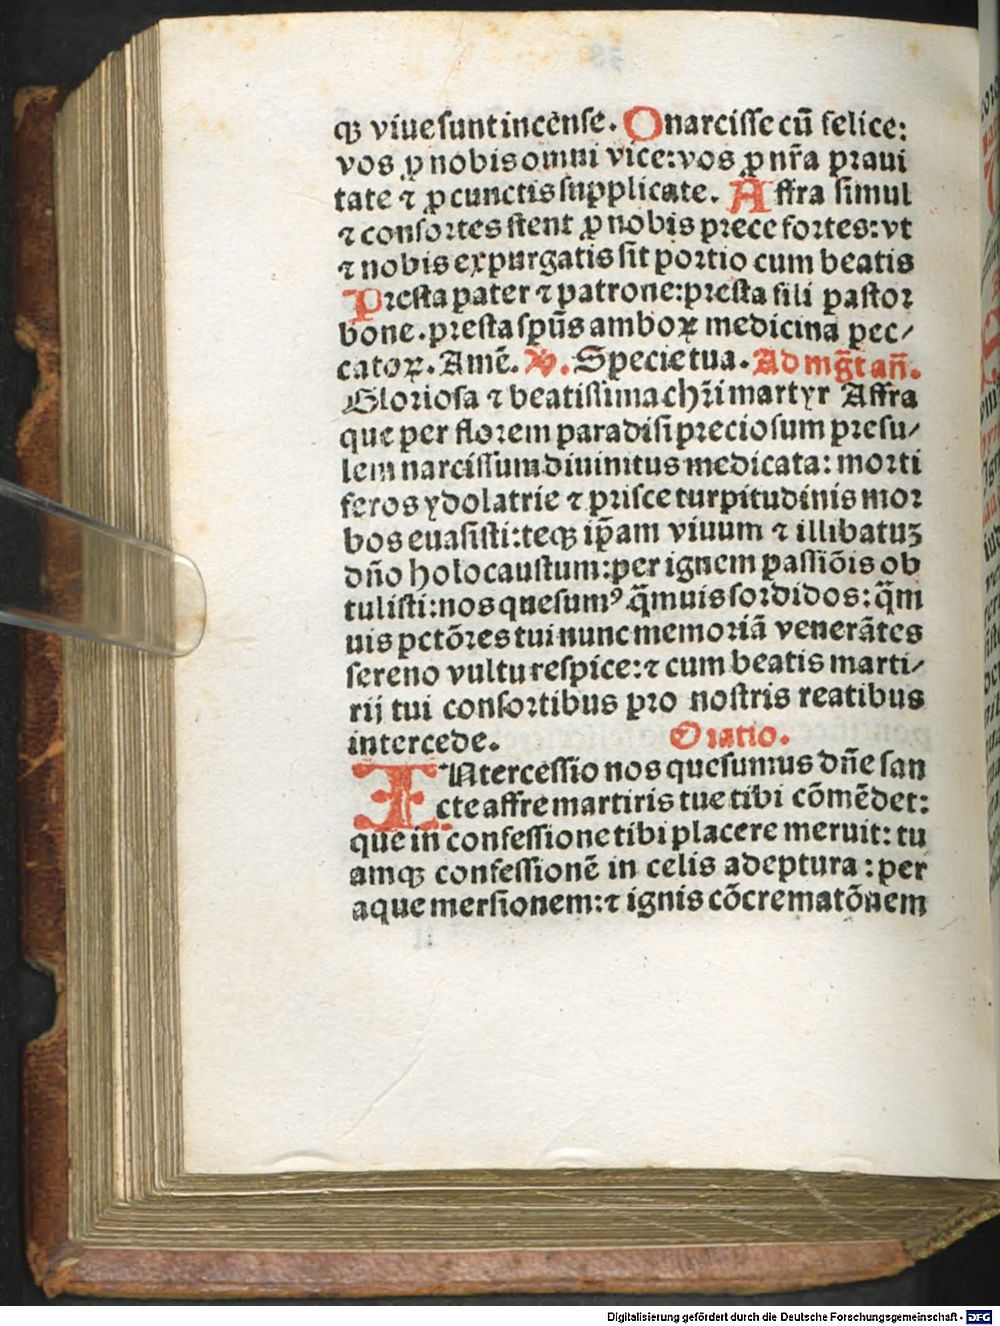 qꝫ viue sunt incēnse. O narcisse cū felice:
vos ꝓ nobis omni vice: vos ꝓ nr̄a praui
tate ⁊ ꝓ cunctis supplicate. Affra simul
⁊ consortes stent ꝓ nobis prece fortes: vt
⁊ nobis expurgatis sit portio cum beatis
Presta pater ⁊ patrone: presta fili pastor
bone. presta spūs amboꝝ medicina pec/
catoꝝ. Amē. V. Specie tua. Ad mḡt an̄.
Gloriosa ⁊ beatissima chr̄i martyr Affra
que per florem paradisi preciosum presu/
lem narcissum diuinitus medicata: morti
feros ydolatrie ⁊ prisce turpitudinis mor
bos euasisti: teqꝫ ip̄am viuum ⁊ illibatuꝫ
dn̄o holocaustum: per ignem passiōis ob
tulisti: nos quesumꝰ q̄muis sordidos: q̄m
uis pctōres tui nunc memoriā venerātes
sereno vultu respice: ⁊ cum beatis marti/
rij tui consortibus pro nostris reatibus
intercede. Oratio.
INtercessio nos quesumus dn̄e san
cte affre martiris tue tibi cōmēdet:
que in confessione tibi placere meruit: tu
amqꝫ confessionē in celis adeptura: per
aque mersionem: ⁊ ignis cōcrematōnem
Digitalisierung gefördert durch die Deutsche Forschungsgemeinschaft - DFG